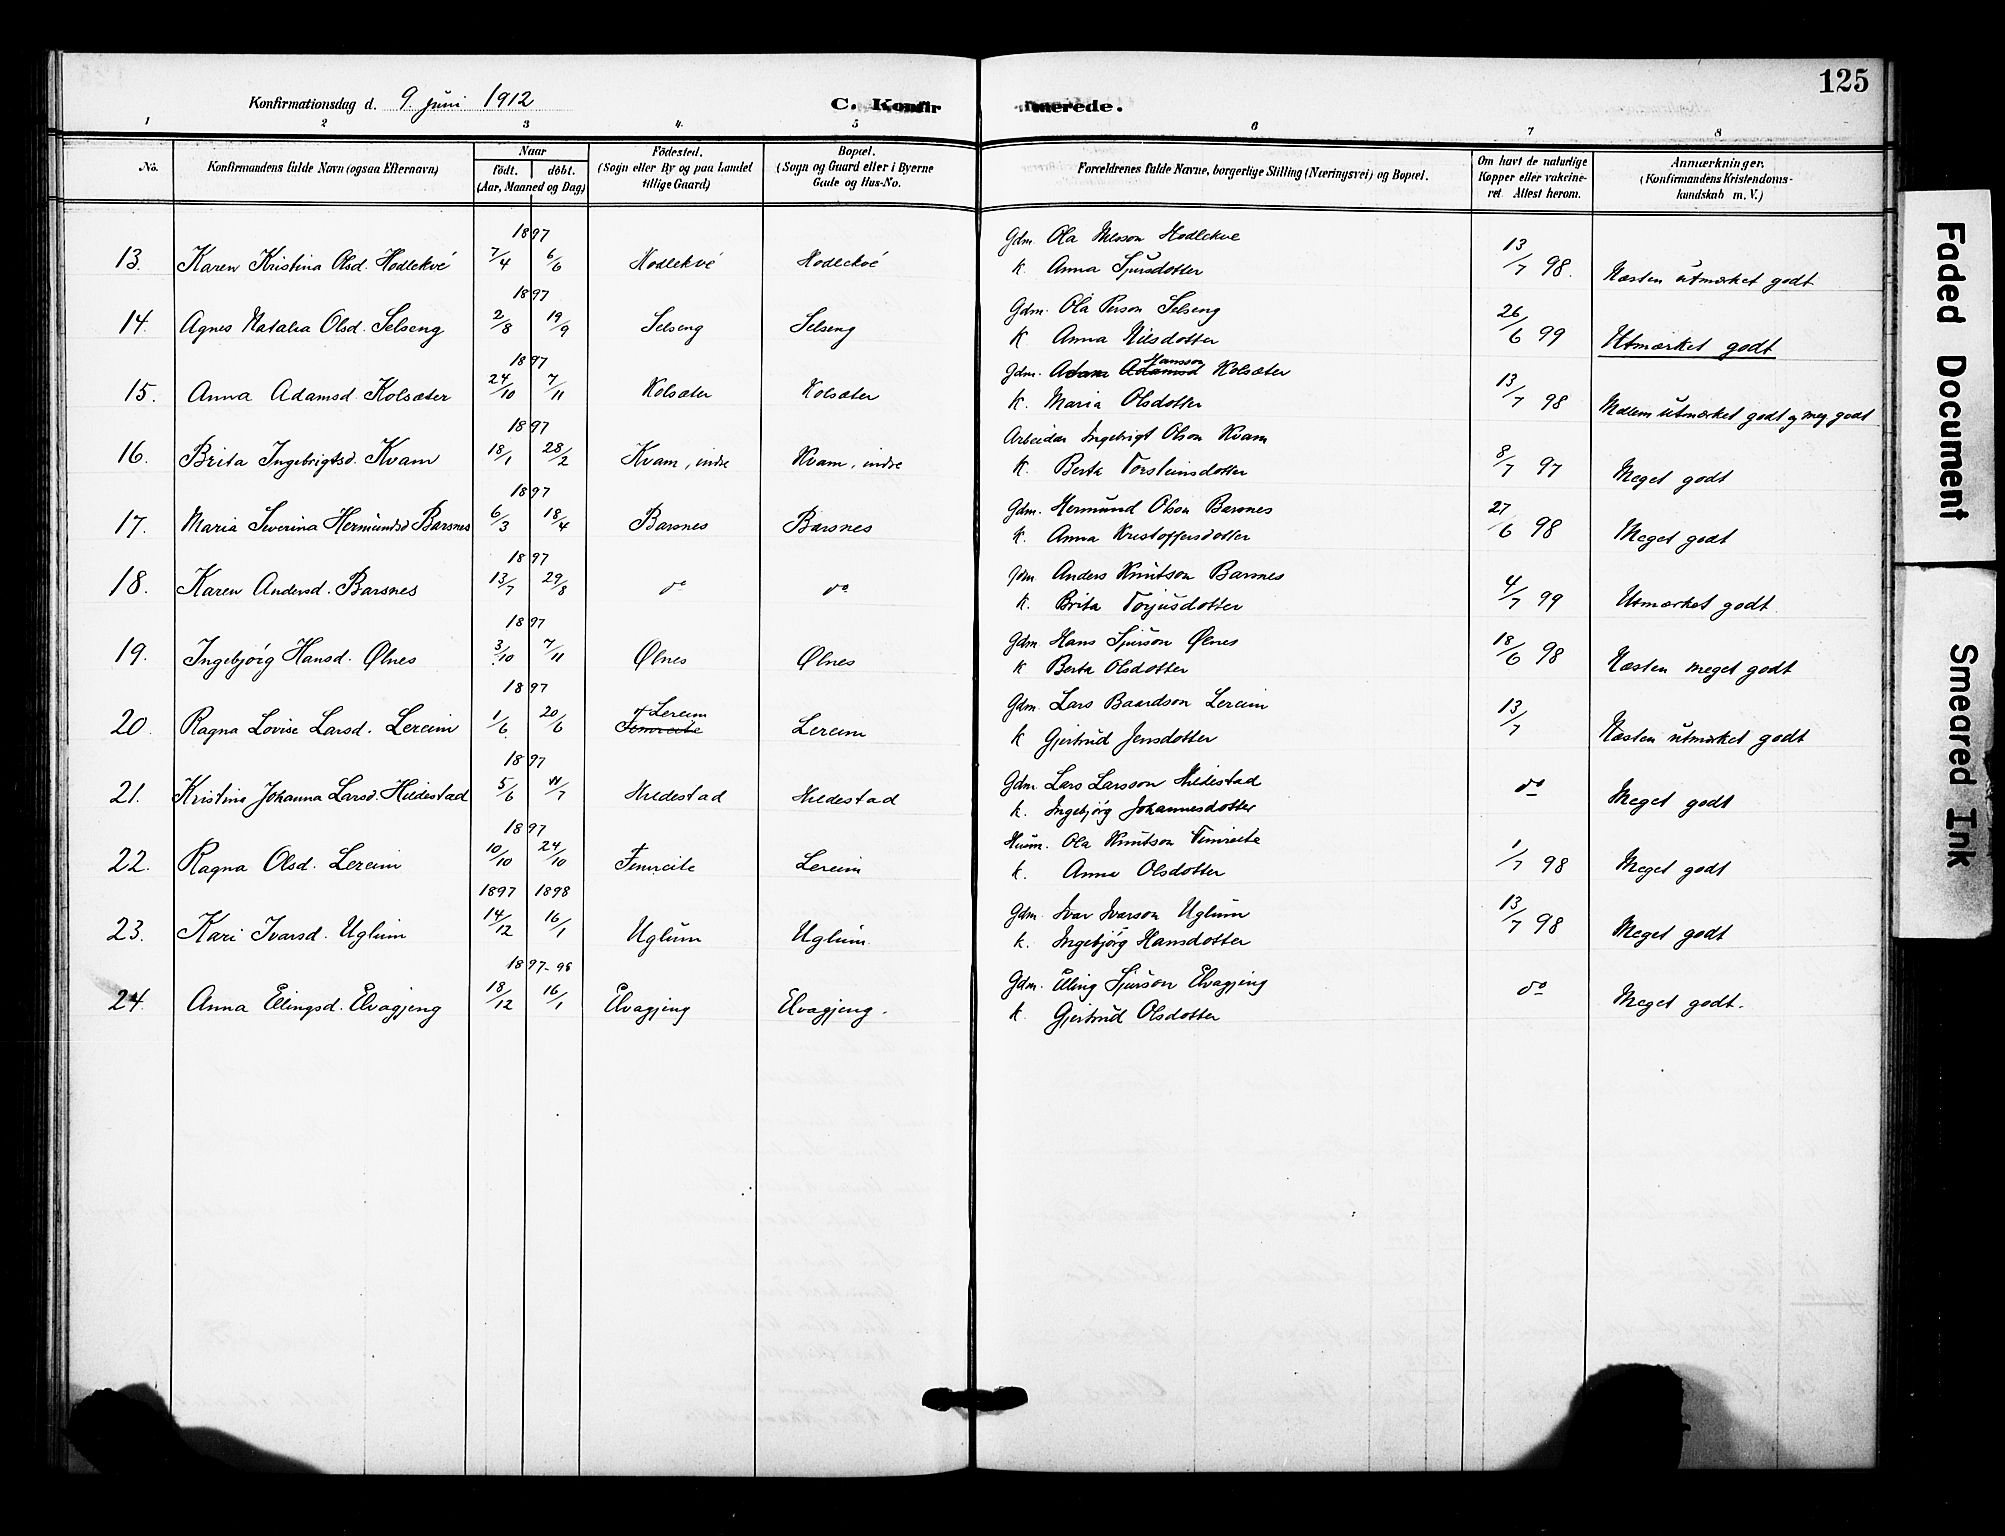 125
Konfirmationsdag d. 9. juni 1912
C. Konfirmerede.
1 2 3 4. 5 6 7 8
No. Konfirmandens fulde Navn (ogsaa Efternavn) Naar født. døbt. (Aar, Maaned og Dag) Fødested. (Sogn eller By og paa Landet tillige Gaard) Bopæl. (Sogn og Gaard eller i Byerne Gade og Hus-No. Forældrenes fulde Navne, borgerlige Stilling (Næringsvei) og Bopæl. Om havt de naturlige Kopper eller vakcineret. Attest herom. Anmærkninger. (Konfirmandens Kristendomskundskab m. V.)
1897 Gdm. Ola Hodlekve
13. Karen Kristina Olsd. Hodlekvé 7/4 6/6 Hodlekvé Hodlekvé K. Anna Sjursdotter 13/7 98. Næsten utmærket godt
1897 Gdm. Ola Person Selseng
14. Agnes Natalia Olsd. Selseng 2/8 19/9 Selseng Selseng K Anna Nilsdotter 26/6 99 Utmærket godt
1897 Gdm. Adam Adamsd Hansson Kolsæter
15. Anna Adamsd. Kolsæter 24/10 7/11 Kolsæter Kolsæter K. Maria Olsdotter 13/7 98 Mellem utmærket godt og meg. godt
1897 Arbeider Ingebrigt Olson Kvam
16. Brita Ingebrigtsd. Kvam 18/1 28/2 Kvam, indre Kvam, indre K. Berta Torsteinsdotter 8/7 97 Meget godt
1897 Gdm. Hermund Olson Barsnes
17. Maria Severina Hermundsd Barsnes 6/3 18/4 Barsnes Barsnes K. Anna Kristoffersdotter 27/6 98 Meget godt
1897 Gdm. Anders Knutson Barsnes
18. Karen Andersd. Barsnes 13/7 29/8 do do K. Brita Torjusdotter 4/7 99 Utmærket godt
1897 Gdm. Hans Sjurson Ølnes
19. Ingebjørg Hansd. Ølnes 3/10 7/11 Ølnes Ølnes K Berta Olsdotter 18/6 98 Næsten meget godt
1897 Gdm. Lars Baardson Lereim
20. Ragna Lovise Larsd. Lereim 1/6 20/6 Lereim Fimreite Lereim K Gjertrud Jensdotter 13/7 Næsten utmærket godt
1897 Gdm Lars Larsson Hildestad
21. Kristine Johanna Larsd. Hildestad 5/6 11/7 Hildestad Hildestad K. Ingebjørg Johannesdotter do Meget godt
1897 Husm. Ola Knutson Fimreite
22. Ragna Olsd. Lereim 10/10 24/10 Fimreite Lereim K. Anna Olsdotter 1/7 98 Meget godt
1897 1898 Gdm. Ivar Ivarson Uglum
23. Kari Ivarsd. Uglum 14/12 16/1 Uglum Uglum K. Ingebjørg Hansdotter 13/7 98 Meget godt
1897-98 Gdm. Elling Sjurson Elvagjeng
24. Anna Ellingsd. Elvagjeng 18/12 16/1 Elvagjeng Elvagjeng. K. Gjertrud Olsdotter do Meget godt.
Faded Document
Smeared Ink